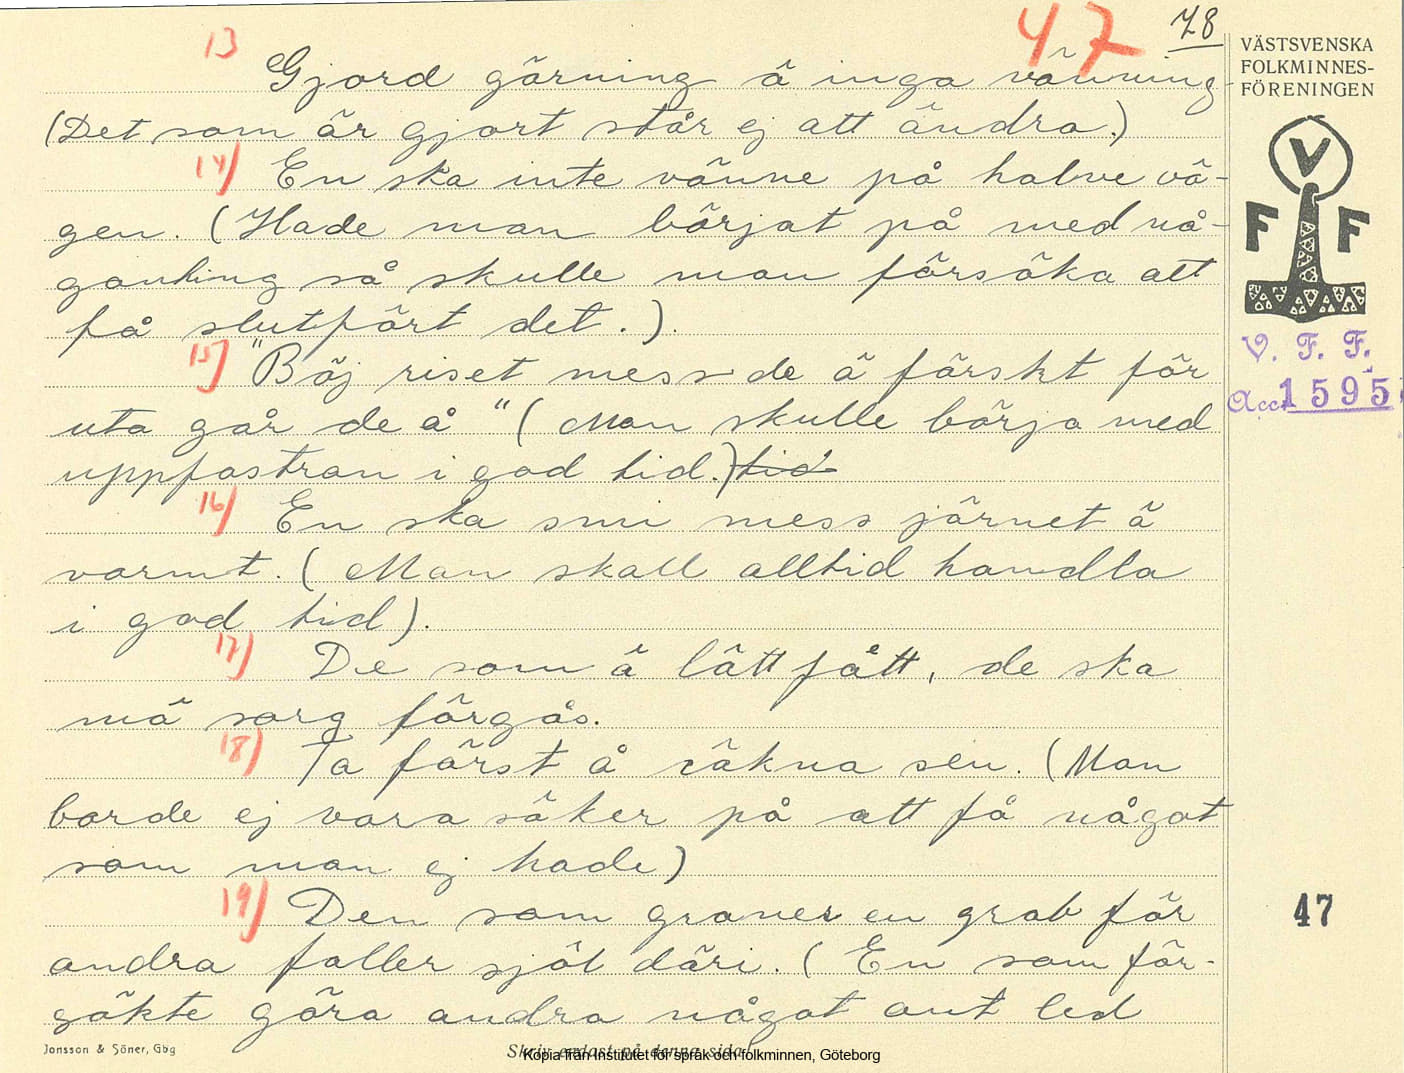 47 78
13 Gjord gärning ä inga vänning
(Det som är gjort står ej att ändra.)
14) En ska inte vänne på halve vä-
gen. (Hade man börjat på med nå-
gonting så skulle man försöka att
få slutfört det.).
15) "Böj riset mess de ä färskt för
uta går de å" (Man skulle börja med
uppfostran i god tid.) tid
16) En ska smi mess järnet ä
varmt. (Man skall alltid handla
i god tid).
17) De som ä lätt fått, de ska
mä sorg förgås.
18) Ta först å räkna sen. (Man
borde ej vara säker på att få något
som man ej hade)
19) Den som graver en grab för
andra faller sjöl däri. (En som för-
sökte göra andra något ont led
VÄSTSVENSKA
FOLKMINNES-
FÖRENINGEN
V
F F
V. F. F.
Acc. 1595
47
Jonsson & Söner, Gbg
Skriv endast på denna sida
Kopia från Institutet för språk och folkminnen, Göteborg